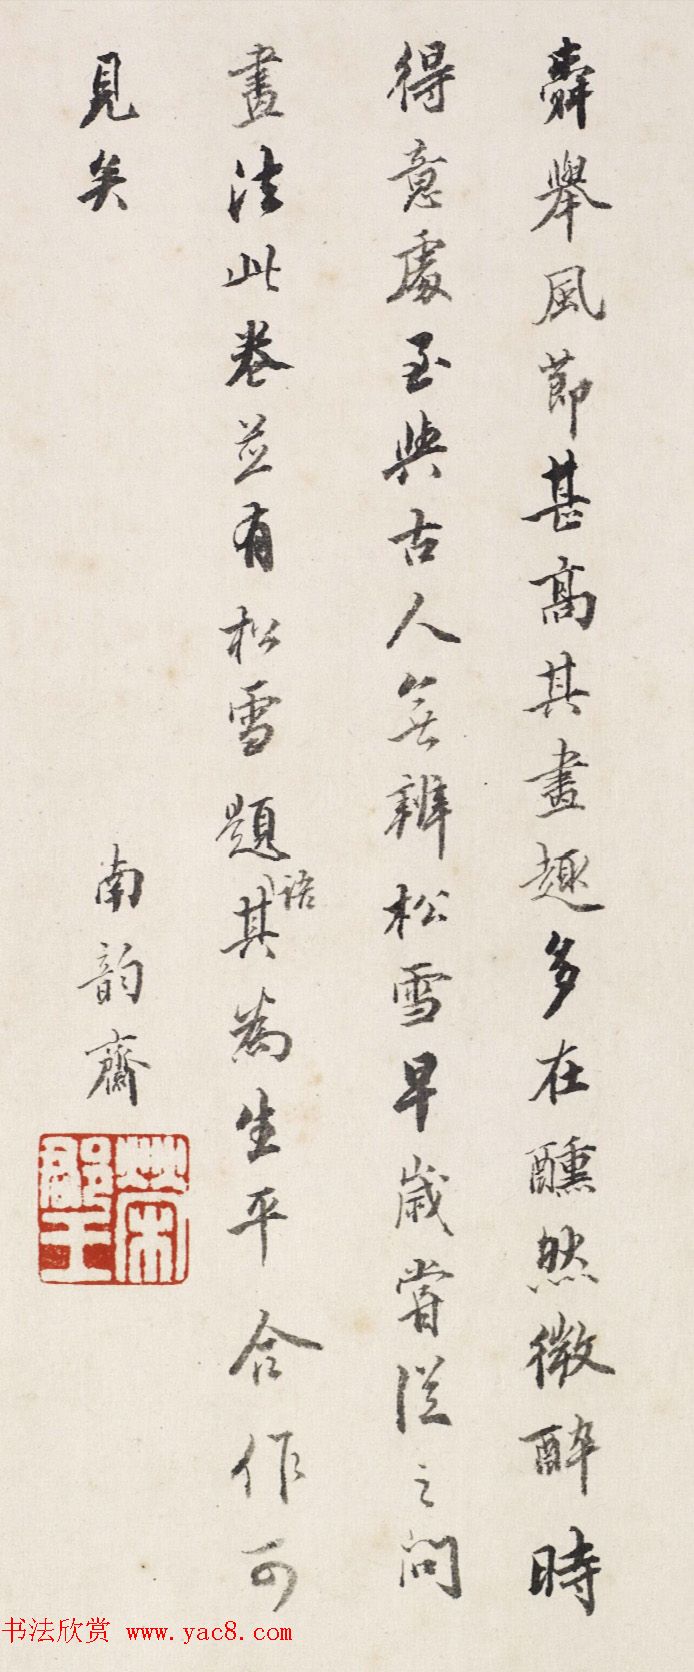 舜舉風節甚高其畫趣多在醺然微醉時
得意處至與古人無辨松雪早歲嘗從之問
畫法此卷並有松雪題語其為生平合作可
見矣
南韵齋
榮郡王
书法欣赏 www.yac8.com